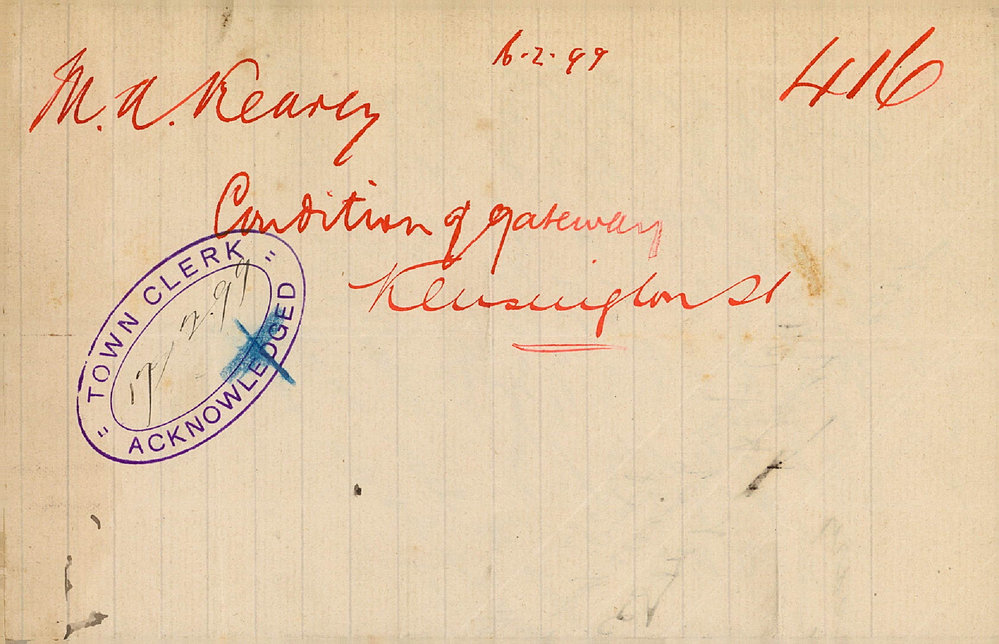 6.2.99
416
M. A. Kearey
Condition of gateway
Kensington St
TOWN CLERK
ACKNOWLEDGED
2.99